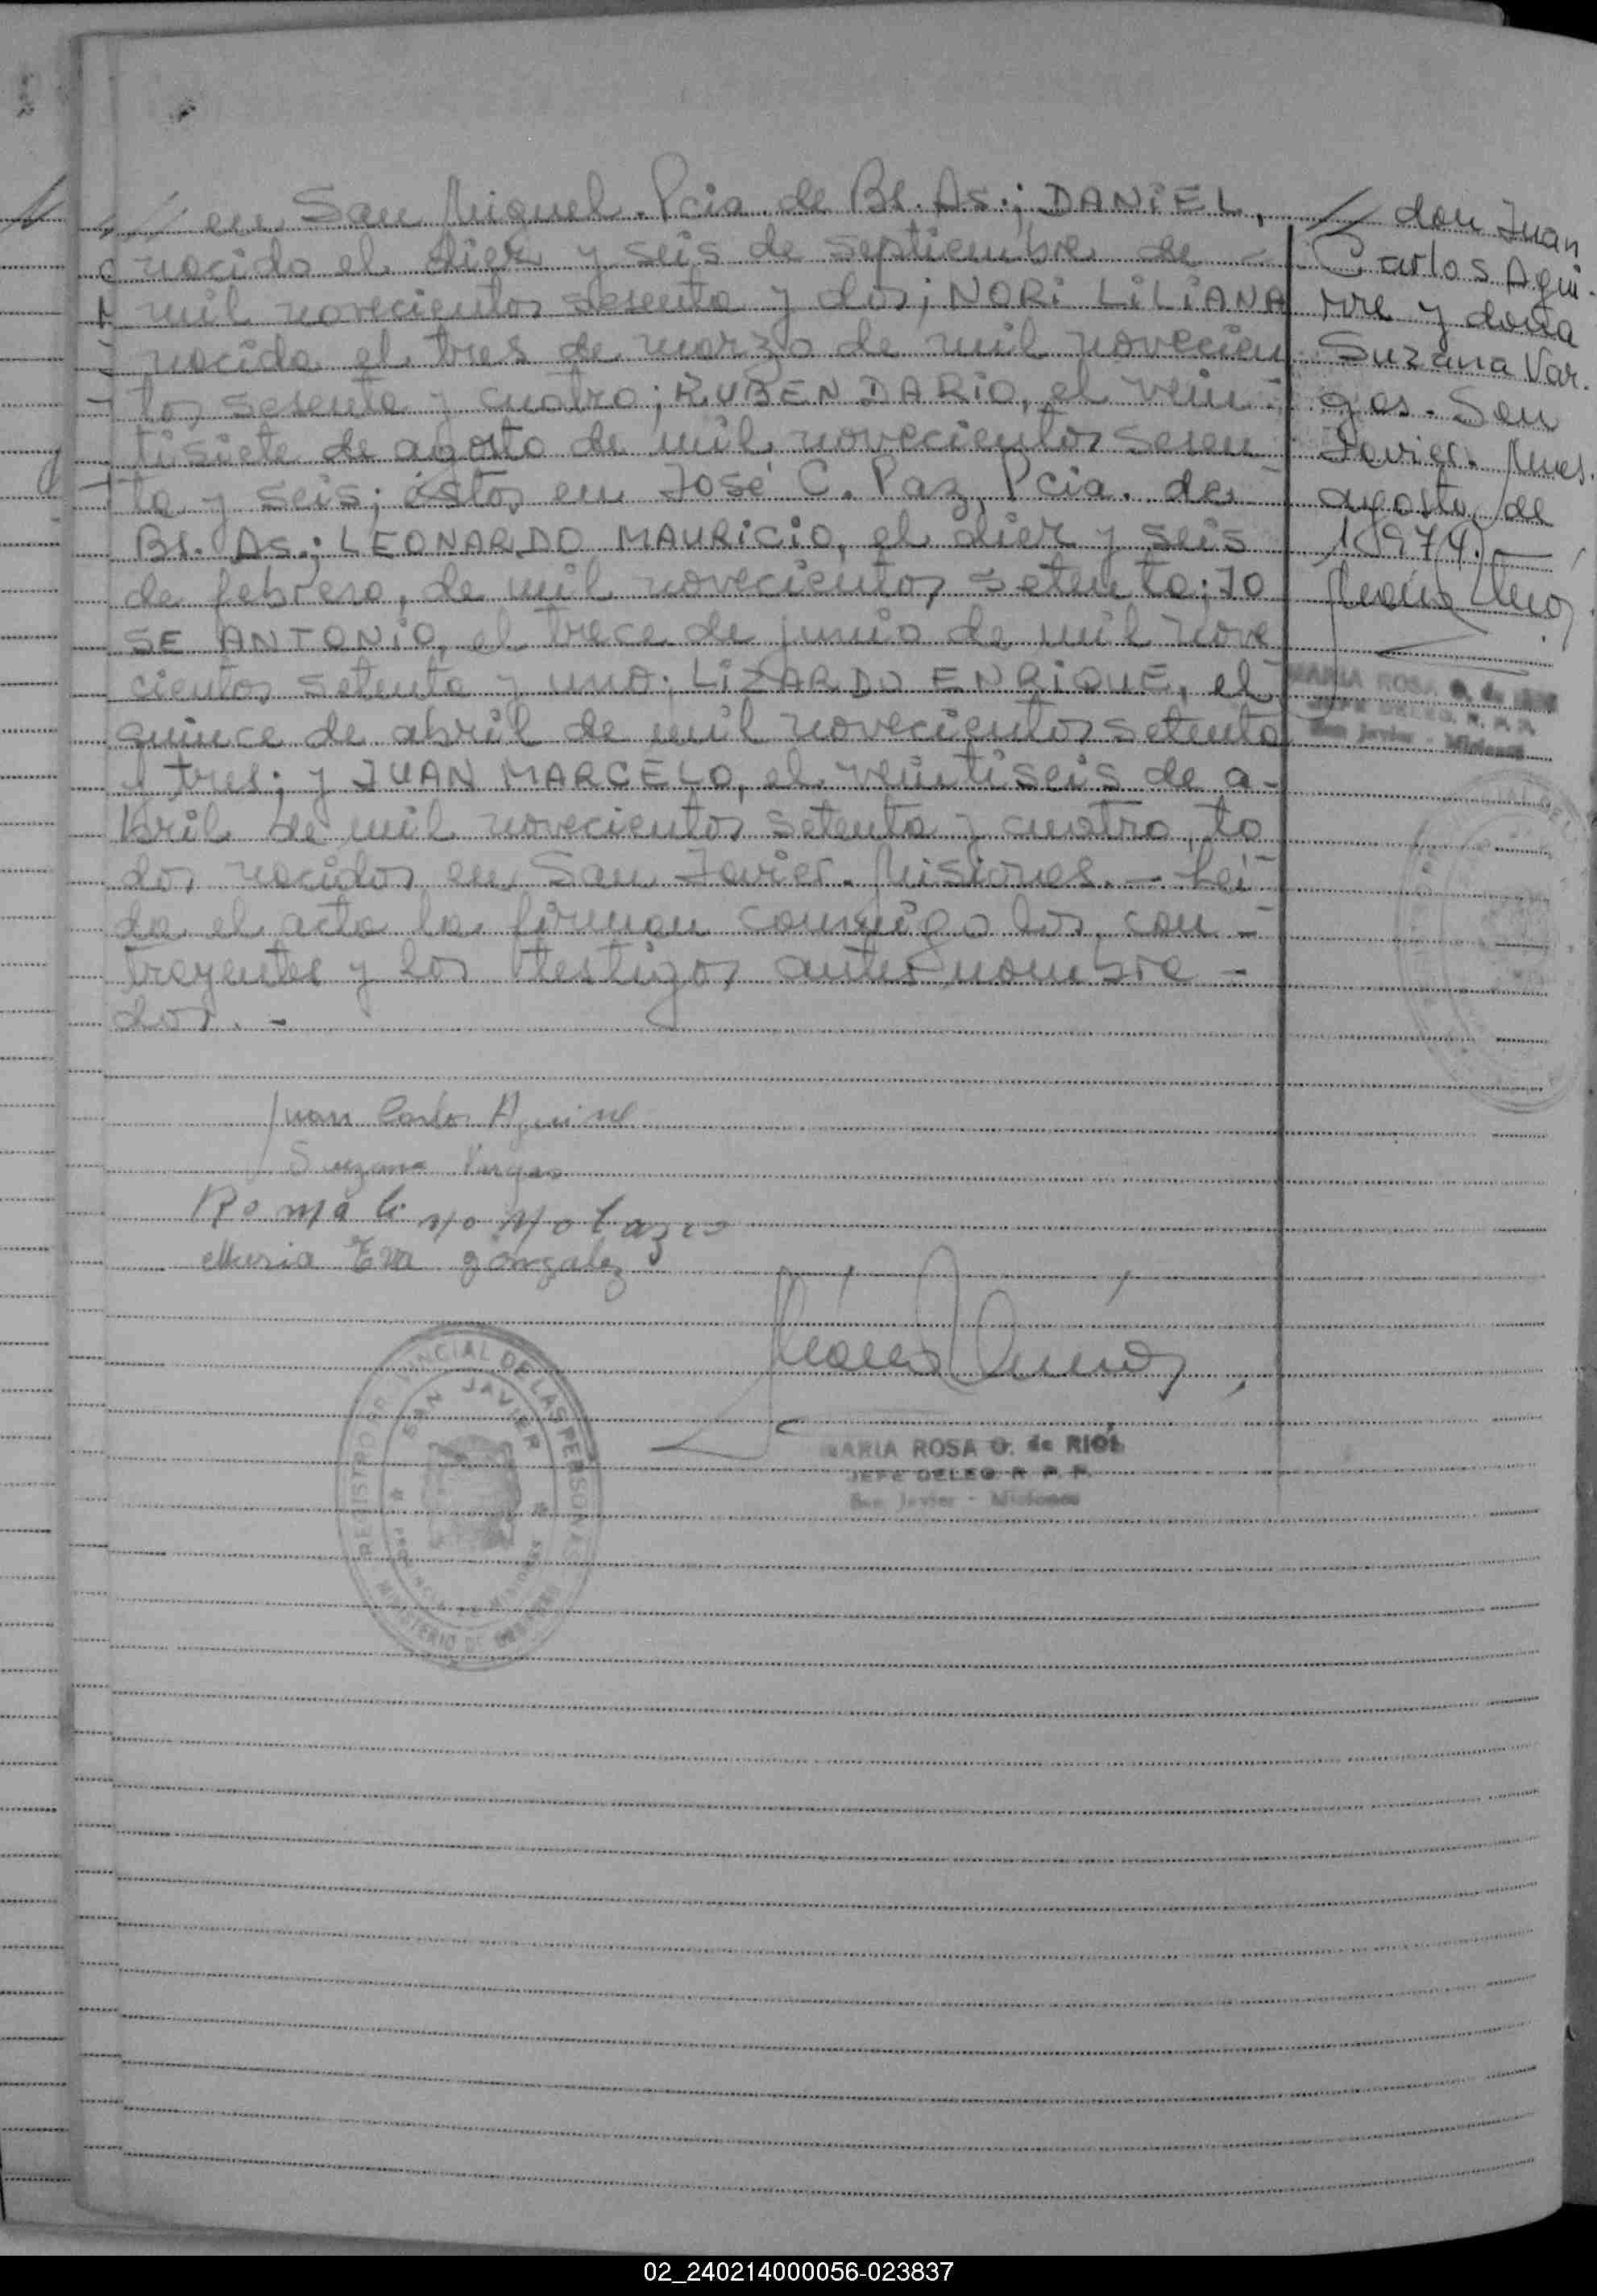 // en San Miguel. Pcia. de Bs. As.; DANIEL,
nacido el diez y seis de septiembre de
mil novecientos sesenta y dos; NORI LILIANA
nacida el tres de marzo de mil novecien
tos sesenta y cuatro; RUBEN DARIO, el vein-
tisiete de agosto de mil novecientos sesen
ta y seis; éstos en José C. Paz, Pcia. de
Bs. As.; LEONARDO MAURICIO, el diez y seis
de febrero, de mil novecientos setenta; JO
SE ANTONIO, el trece de junio de mil nove
cientos setenta y uno; LIZARDO ENRIQUE, el
quince de abril de mil novecientos setenta
y tres; y JUAN MARCELO, el veintiseis de a-
bril de mil novecientos setenta y cuatro, to
dos nacidos en San Javier. Misiones. - Leí-
da el acta la firman conmigo los con-
trayentes y los testigos antes nombra-
dos. -
// don Juan
Carlos Agui-
rre y doña
Suzana Var-
gas. San
Javier. Mnes.
agosto de
1974.
MARIA ROSA O. de RIOS
JEFE DELEG. R. P. P.
San Javier - Misiones
Juan Carlos Aguirre
Suzana Vargas
Maria Eva gonzalez
REGISTRO PROVINCIAL DE LAS PERSONAS
SAN JAVIER
MINISTERIO DE GOBIERNO
MARIA ROSA O. de RIOS
JEFE DELEG R. P. P.
San Javier - Misiones
02_240214000056-023837